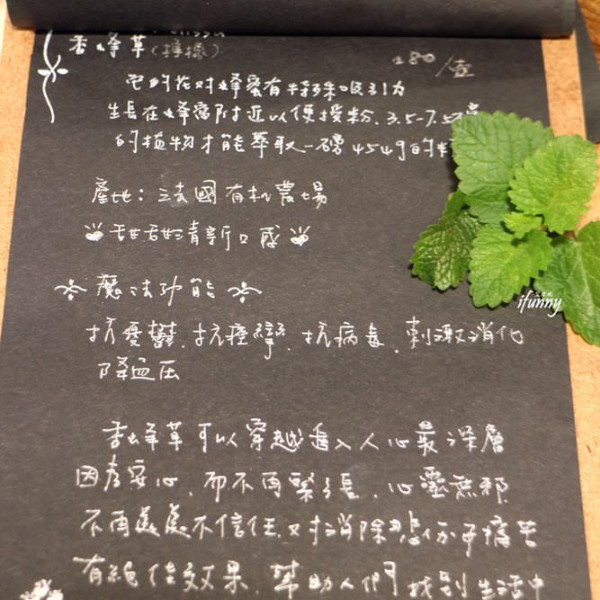 香蜂草(檸檬)
280/壺
它的花對蜂蜜有特殊吸引力
生長在蜂窩附近以便授粉、3.5-7
的植物才能萃取一磅454g的精
產地：法國有机農場
甜甜清新口感
魔法功能
抗憂鬱、抗痙攣、抗病毒、刺激消化
降血压
ifunny
香蜂草可以穿越進入人心最深層
因为安心、而不再緊張、心靈無邪
不再處處不信任又扫消除悲伤于痛苦
有絕佳效果、幫助人們找到生活中